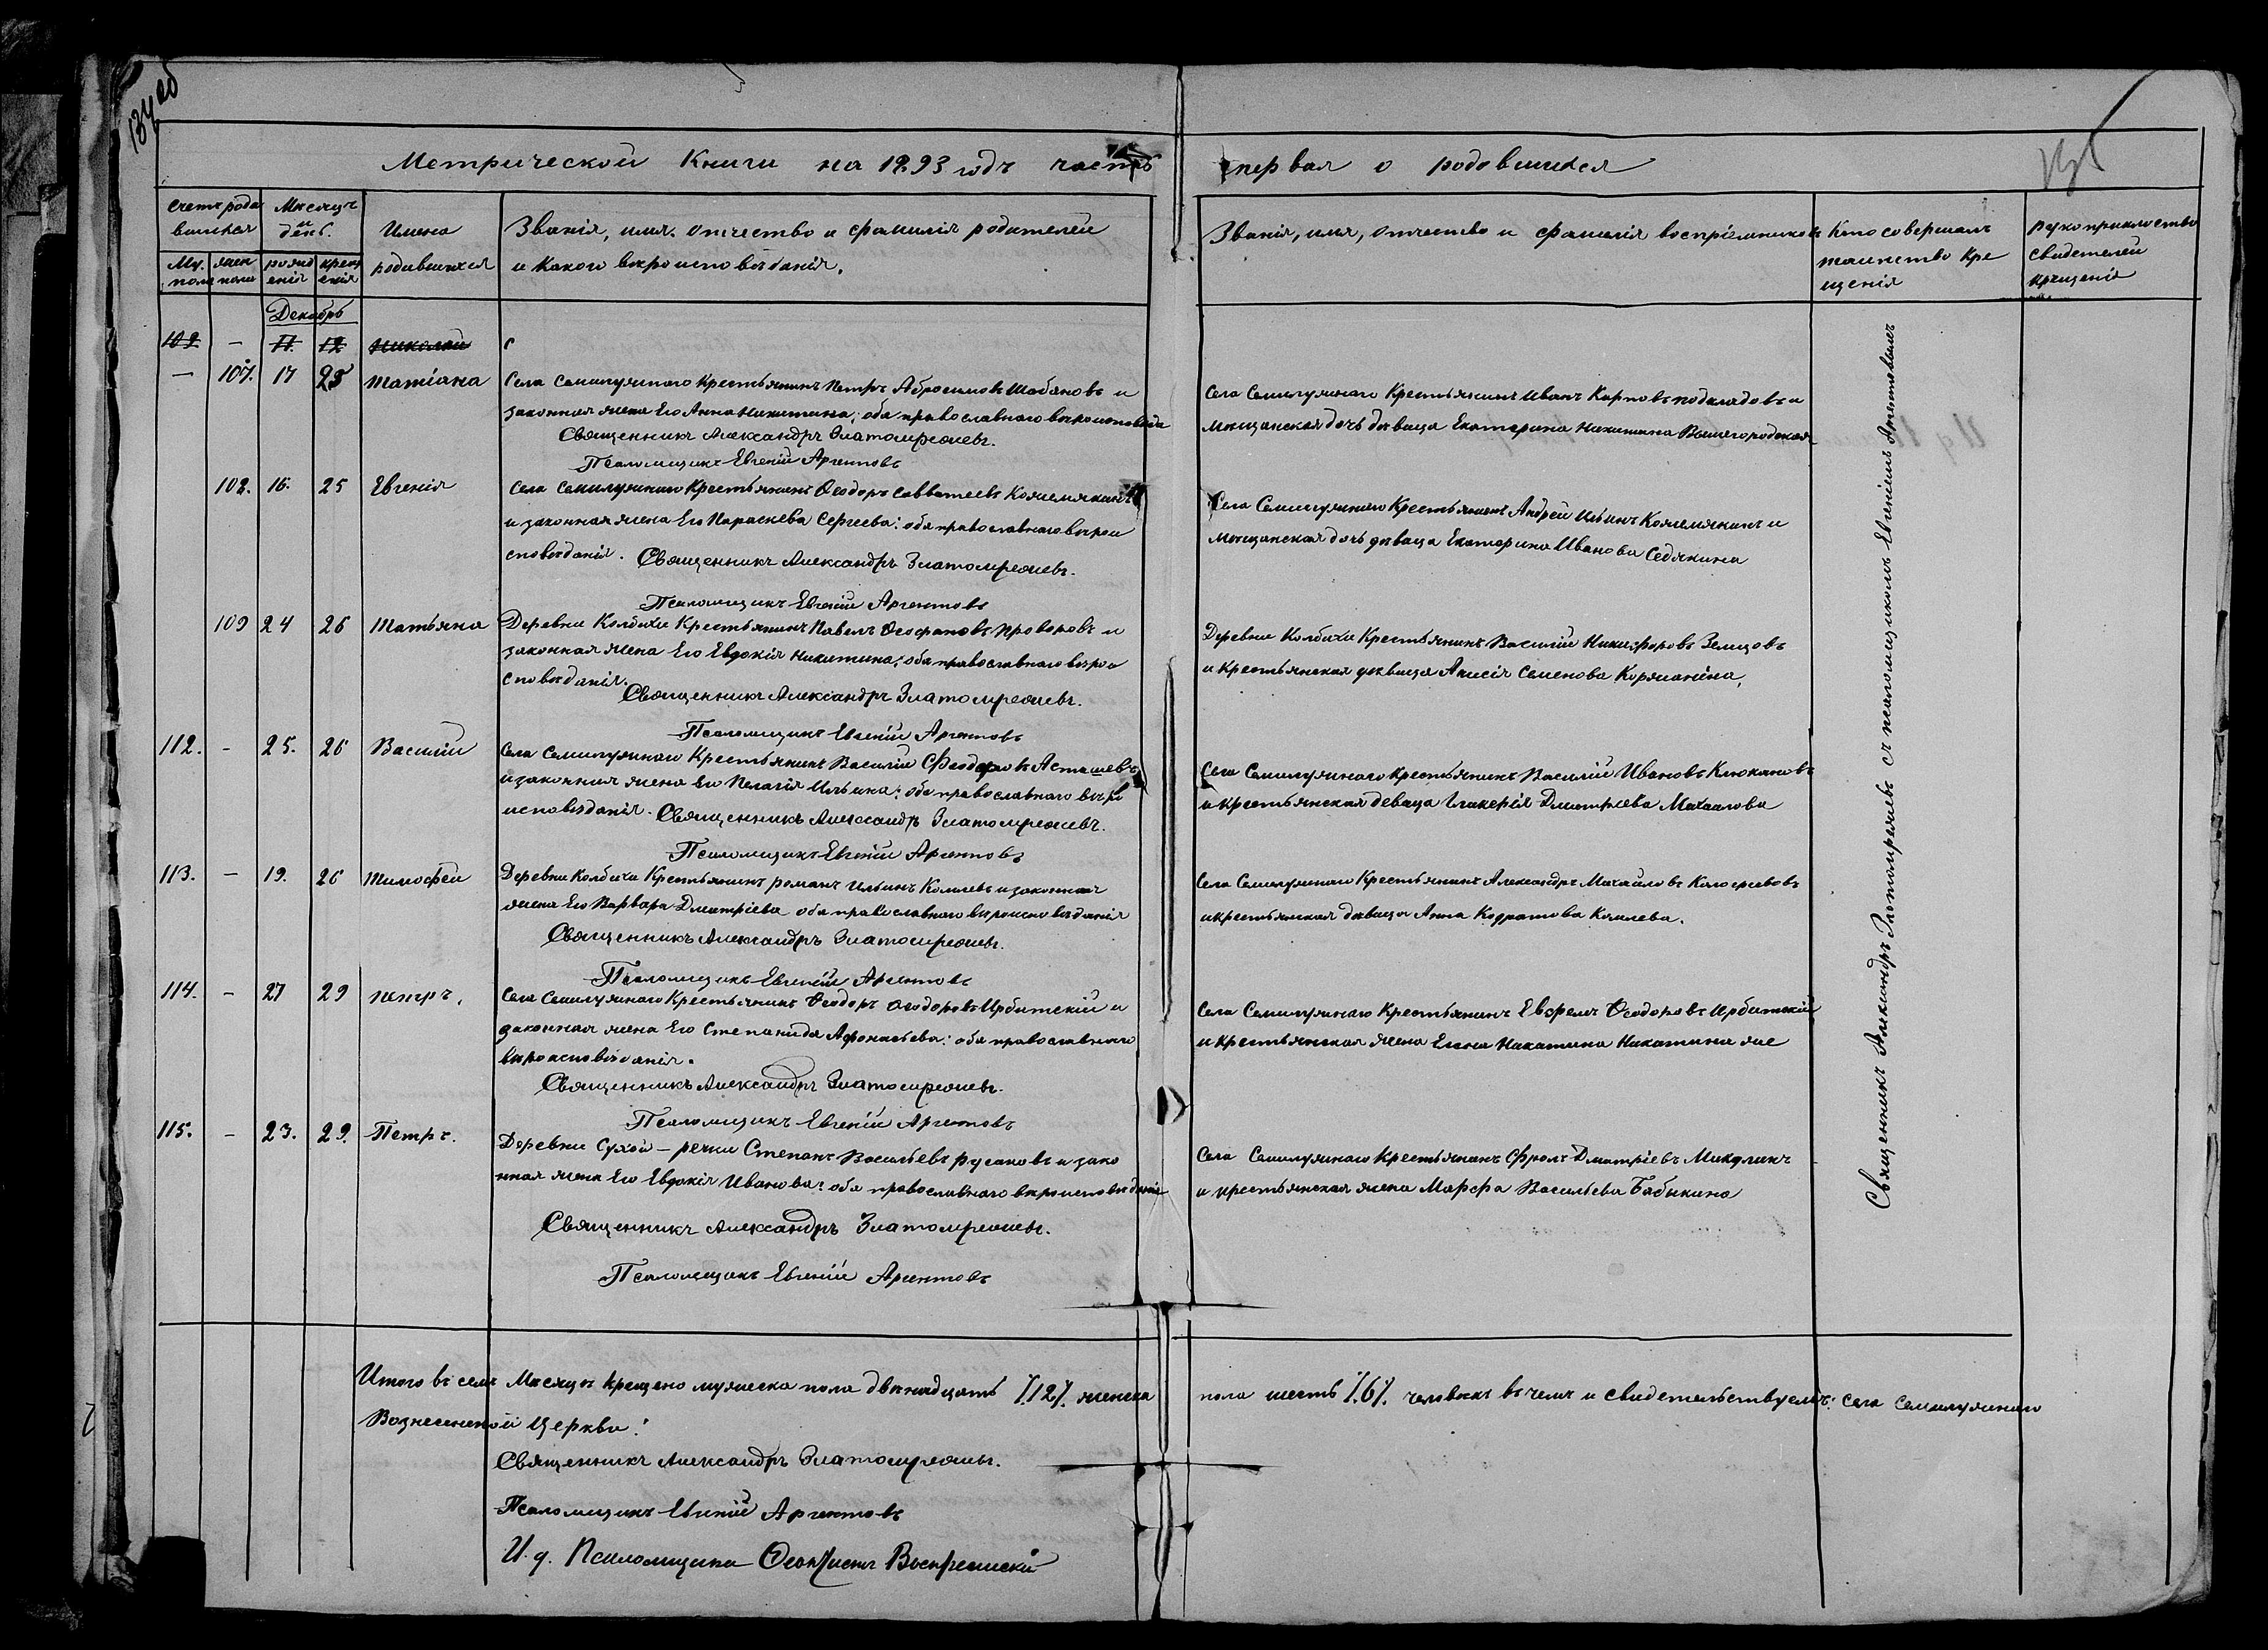 134 об
Метрической Книги на 1893 годъ часть первая о родовшихся
Счетъ родовшихся
Мѣсяцъ и день.
Имена родившихся
Званія, имя. отчество и фамилія родителей
и какого вѣроисповѣданія.
Званія, имя, отчество и фамилія воспріемниковъ
Кто совершалъ
таинство Кре
щенія
рукоприкладство
свидетелей
крещенія
Му. пола
жен пола
рожд енія
крещ енія
Декабрь
109 - 11. 12 Николай
С
— 107. 17 25 Татіана
Села Семилужнаго Крестьянинъ Петръ Абросимовъ Шабановъ и
законная жена Его Анна Никитина; оба православнаго вѣроисповѣда
Священникъ Александръ Златомрежевъ.
Псаломщикъ Евгеній Аргентовъ
Села Семилужнаго Крестьянинъ Иванъ Карповъ и
мещанская дочь дѣвица Екатерина Никитина Вышегородская
108. 16. 25 Евгенія
Села Семилужнаго Крестьянинъ Ѳеодоръ Савватеевъ Кожемякинъ
и законная жена Его Параскева Сергеева: оба православнаго вѣрои
споведанія. Священникъ Александръ Златомрежевъ.
Псаломщикъ Евгеній Аргентовъ
Села Семилужнаго Крестьянинъ Андрей Ильинъ Кожемякинъ и
мещанская дочь дѣвица Екатерина Иванова Седякина
109 24 26 Татьяна
Деревни Колбихи Крестьянинъ Павелъ Ѳеофановъ Проворовъ и
законная жена Его Евдокія Никитина; оба православнаго вѣрои
споведанія.
Священникъ Александръ Златомрежевъ.
Псаломщикъ Евгеній Аргентовъ
Деревни Колбихи Крестьянинъ Василій Никифоровъ Земцовъ
и Крестьянская дѣвица Анисія Семенова
112. - 25. 26 Василій
Села Семилужнаго Крестьянинъ Василій Феодоровъ Асташевъ
и законная жена Его Пелагія Ильина: оба православнаго вѣро
исповѣданія. Священникъ Александръ Златомрежевъ.
Псаломщикъ Евгеній Аргентовъ
Села Семилужнаго Крестьянинъ Василій Ивановъ Клюкановъ
и крестьянская девица Гликерія Дмитріева Михаилова
113. — 19. 26 Тимофей
Деревни Колбихи Крестьянинъ романъ Ильинъ и законная
жена Его Варвара Дмитріева оба православнаго вѣроисповѣданія
Священникъ Александръ Златомрежевъ.
Псаломщикъ Евгеній Аргентовъ
Села Семилужнаго Крестьянинъ Александръ Михайловъ
и крестьянская дѣвица Анна Кодратова
114. - 27 29 петръ.
Села Семилужнаго Крестьянинъ Ѳеодоръ Ѳеодоровъ Ирбитскій и
законная жена Его Степанида Афонасьева: оба православнаго
вѣроисповѣданія.
Священникъ Александръ Златомрежевъ.
Псаломщикъ Евгеній Аргентовъ
Села Семилужнаго Крестьянинъ Ефремъ Ѳеодоровъ Ирбитскій
и крестьянская жена Елена Никитина Никитина же
115. - 23. 29. Петръ.
Деревни Сухой - речки Степанъ Васильевъ русаковъ и зако
нная жена Его Евдокія Иванова: оба православнаго вѣроисповѣданія
Священникъ Александръ Златомрежевъ.
Псаломщикъ Евгеній Аргентовъ
Села Семилужнаго Крестьянинъ Фролъ Дмитріевъ Микулинъ
и крестьянская жена Марфа Васильева Бабыкина
Священникъ Александръ Златомрежевъ съ псаломщикомъ Евгеніемъ Аргентовымъ
Итого въ семъ Месяцѣ крещено мужеска пола двѣнадцать /.12/. женска пола шесть /.6/. человекъ въ чемъ и свидетельствуемъ: села Семилужнаго
Вознесенской Церкви:
Священникъ Александръ Златомрежевъ.
Псаломщикъ Евгеній Аргентовъ
И. д. Псаломщика Ѳеоктистъ Воскресенскій